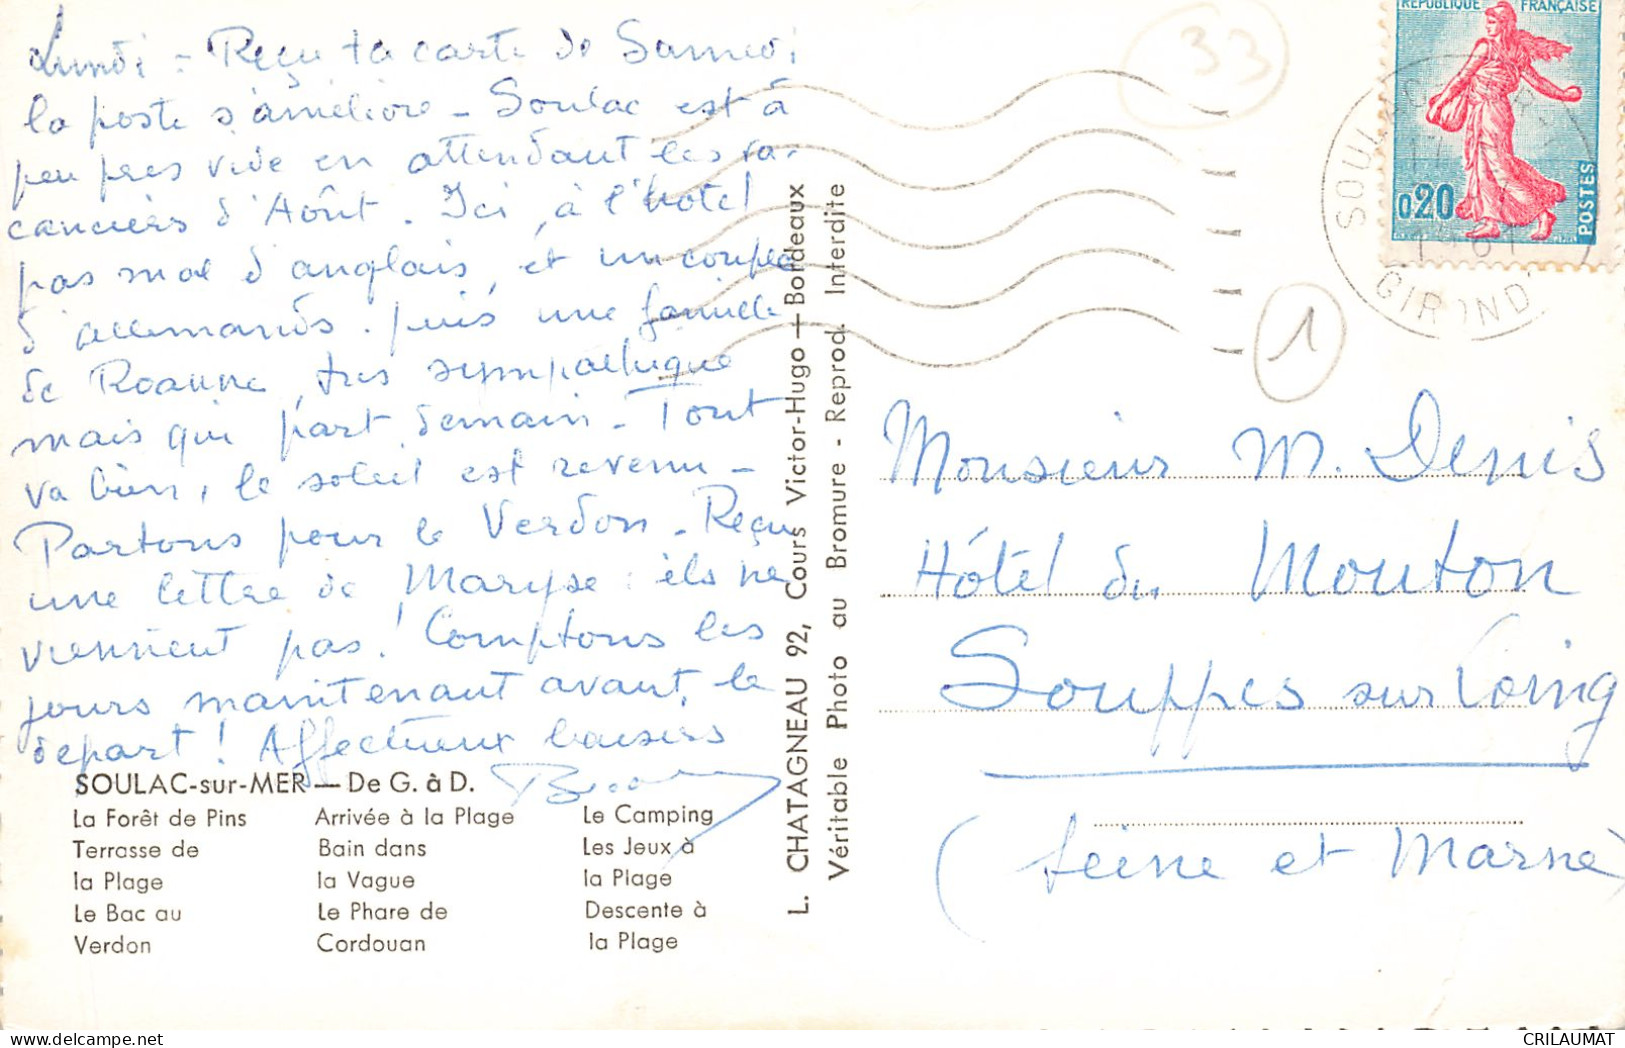 Lundi - Reçu ta carte de Samedi
la poste s'améliore - Soulac est à
peu pres vide en attendant les va-
canciers d'Août. Ici, à l'hotel
pas mal d'anglais, et un couple
d'allemands. puis une famille
de Roanne, tres sympathique
mais qui part demain - Tout
va bien, le soleil est revenu -
Partons pour le Verdon - Reçu
une lettre de Maryse : ils ne
viennent pas! Comptons les
jours maintenant avant le
depart! Affectueux baisers
SOULAC-sur-MER — De G. à D.
La Forêt de Pins
Terrasse de
la Plage
Le Bac au
Verdon
Arrivée à la Plage
Bain dans
la Vague
Le Phare de
Cordouan
Le Camping
Les Jeux à
la Plage
Descente à
la Plage
L. CHATAGNEAU 92, Cours Victor-Hugo — Bordeaux
Véritable Photo au Bromure - Reprod. Interdite
33
1
RÉPUBLIQUE FRANÇAISE
0,20
POSTES
SOULAC
GIROND
Monsieur M. Denis
Hôtel du Mouton
Souppes sur Loing
(Seine et Marne)
CRILAUMAT